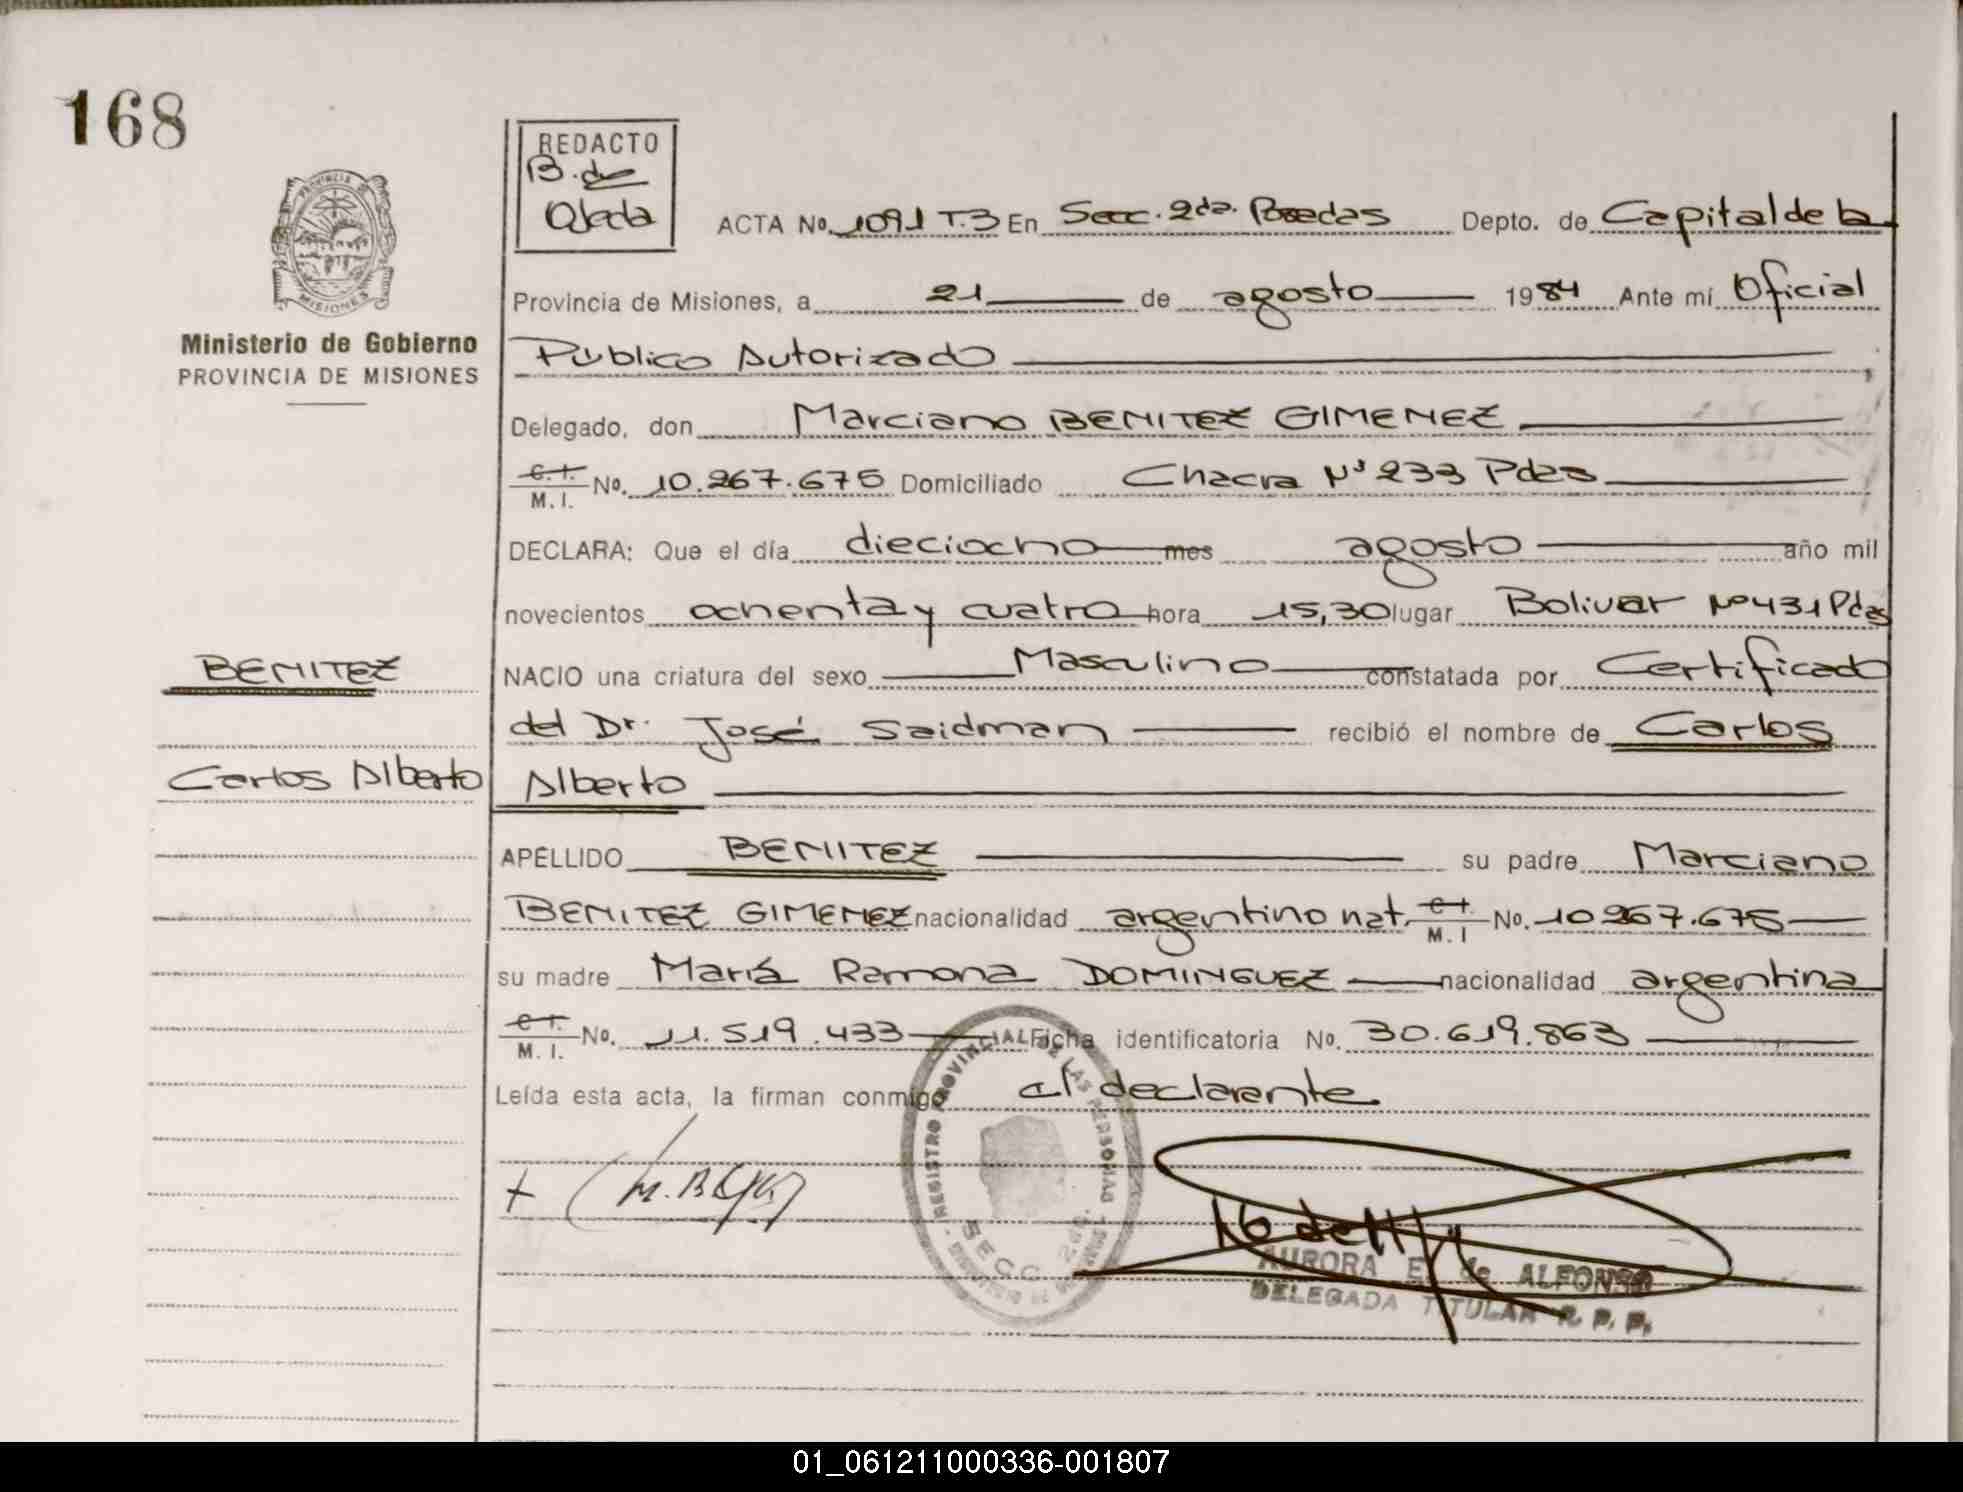 168
REDACTO
B. de
Ojeda
PROVINCIA DE
MISIONES
Ministerio de Gobierno
PROVINCIA DE MISIONES
ACTA No. 1091 T.3 En Secc. 2da. Posadas Depto. de Capital de la
Provincia de Misiones, a 21 de agosto 1984 Ante mí Oficial
Público Autorizado
Delegado, don Marciano BENITEZ GIMENEZ
C.I. M.I. No. 10.267.675 Domiciliado Chacra Nº 233 Pdas
DECLARA: Que el día dieciocho mes agosto año mil
novecientos ochenta y cuatro hora 15,30 lugar Bolivar Nº 431 Pdas
BENITEZ
NACIO una criatura del sexo Masculino constatada por Certificado
del Dr. José Saidman recibió el nombre de Carlos
Carlos Alberto
Alberto
APELLIDO BENITEZ su padre Marciano
BENITEZ GIMENEZ nacionalidad argentino nat. C.I. M.I No. 10.267.675
su madre María Ramona DOMINGUEZ nacionalidad argentina
C.I. M.I. No. 11.519.433 Ficha identificatoria No. 30.619.863
Leída esta acta, la firman conmigo el declarante
REGISTRO PROVINCIAL DE LAS PERSONAS
SECC. 2da.
AURORA E. de ALFONSO
DELEGADA TITULAR R. P. P.
01_061211000336-001807